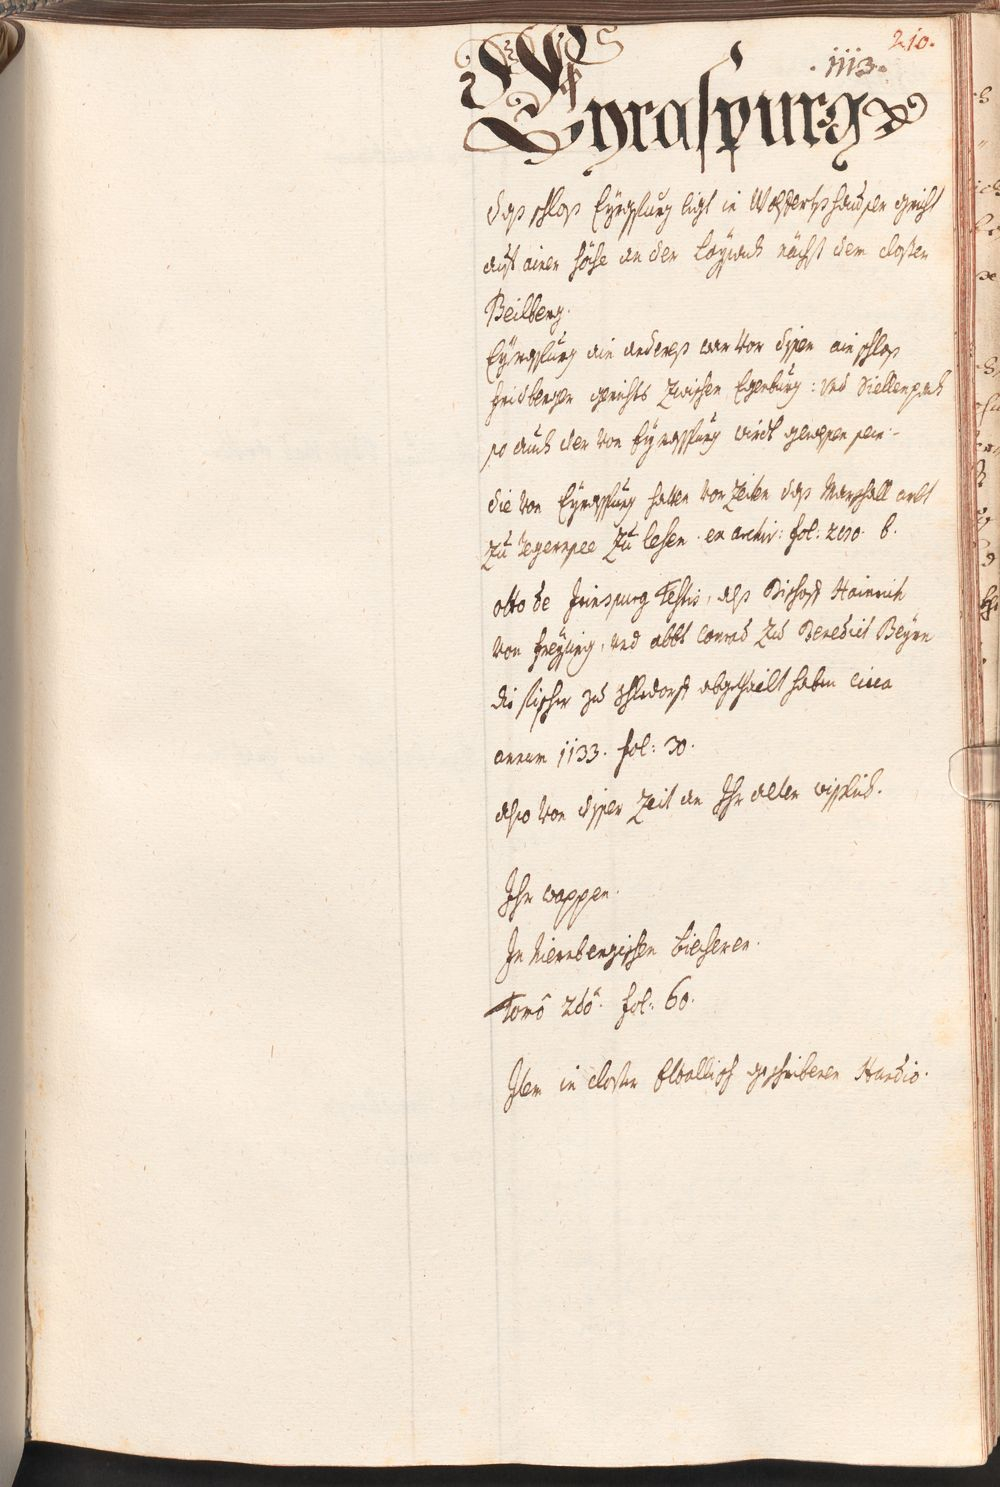 210.
. 1113.
Eyraspurg
daß schloß Eyraspurg ligt in Wolfertshauser gericht
auf ainer höhe an der Loysach nächst dem closter
Beilberg.
Eyraspurg ain anderes war vor disem ain schloß
fridberger gerichts zwischen Egenburg: und
so auch der von Eyraspurg wirdt gewesen sein.-
die von Eyraspurg haben vor zeiten daß Marschall ambt
zu Tegernsee zu lehen. ex archiv: fol: 200. b.
otto de Iringspurg testis, alß Bischoff Hainrich
von Freysing, und abbt Conrad zu Benedict Beyrn
die fischer zu Schledorff abgethailt haben circa
annum 1133. fol: 30.
also von diser zeit an Ihr alter wißlich.
Ihr wappen.
In Niernbergischen Biecheren.
Tomo 2do. fol: 60.
Item in closter geschribenen